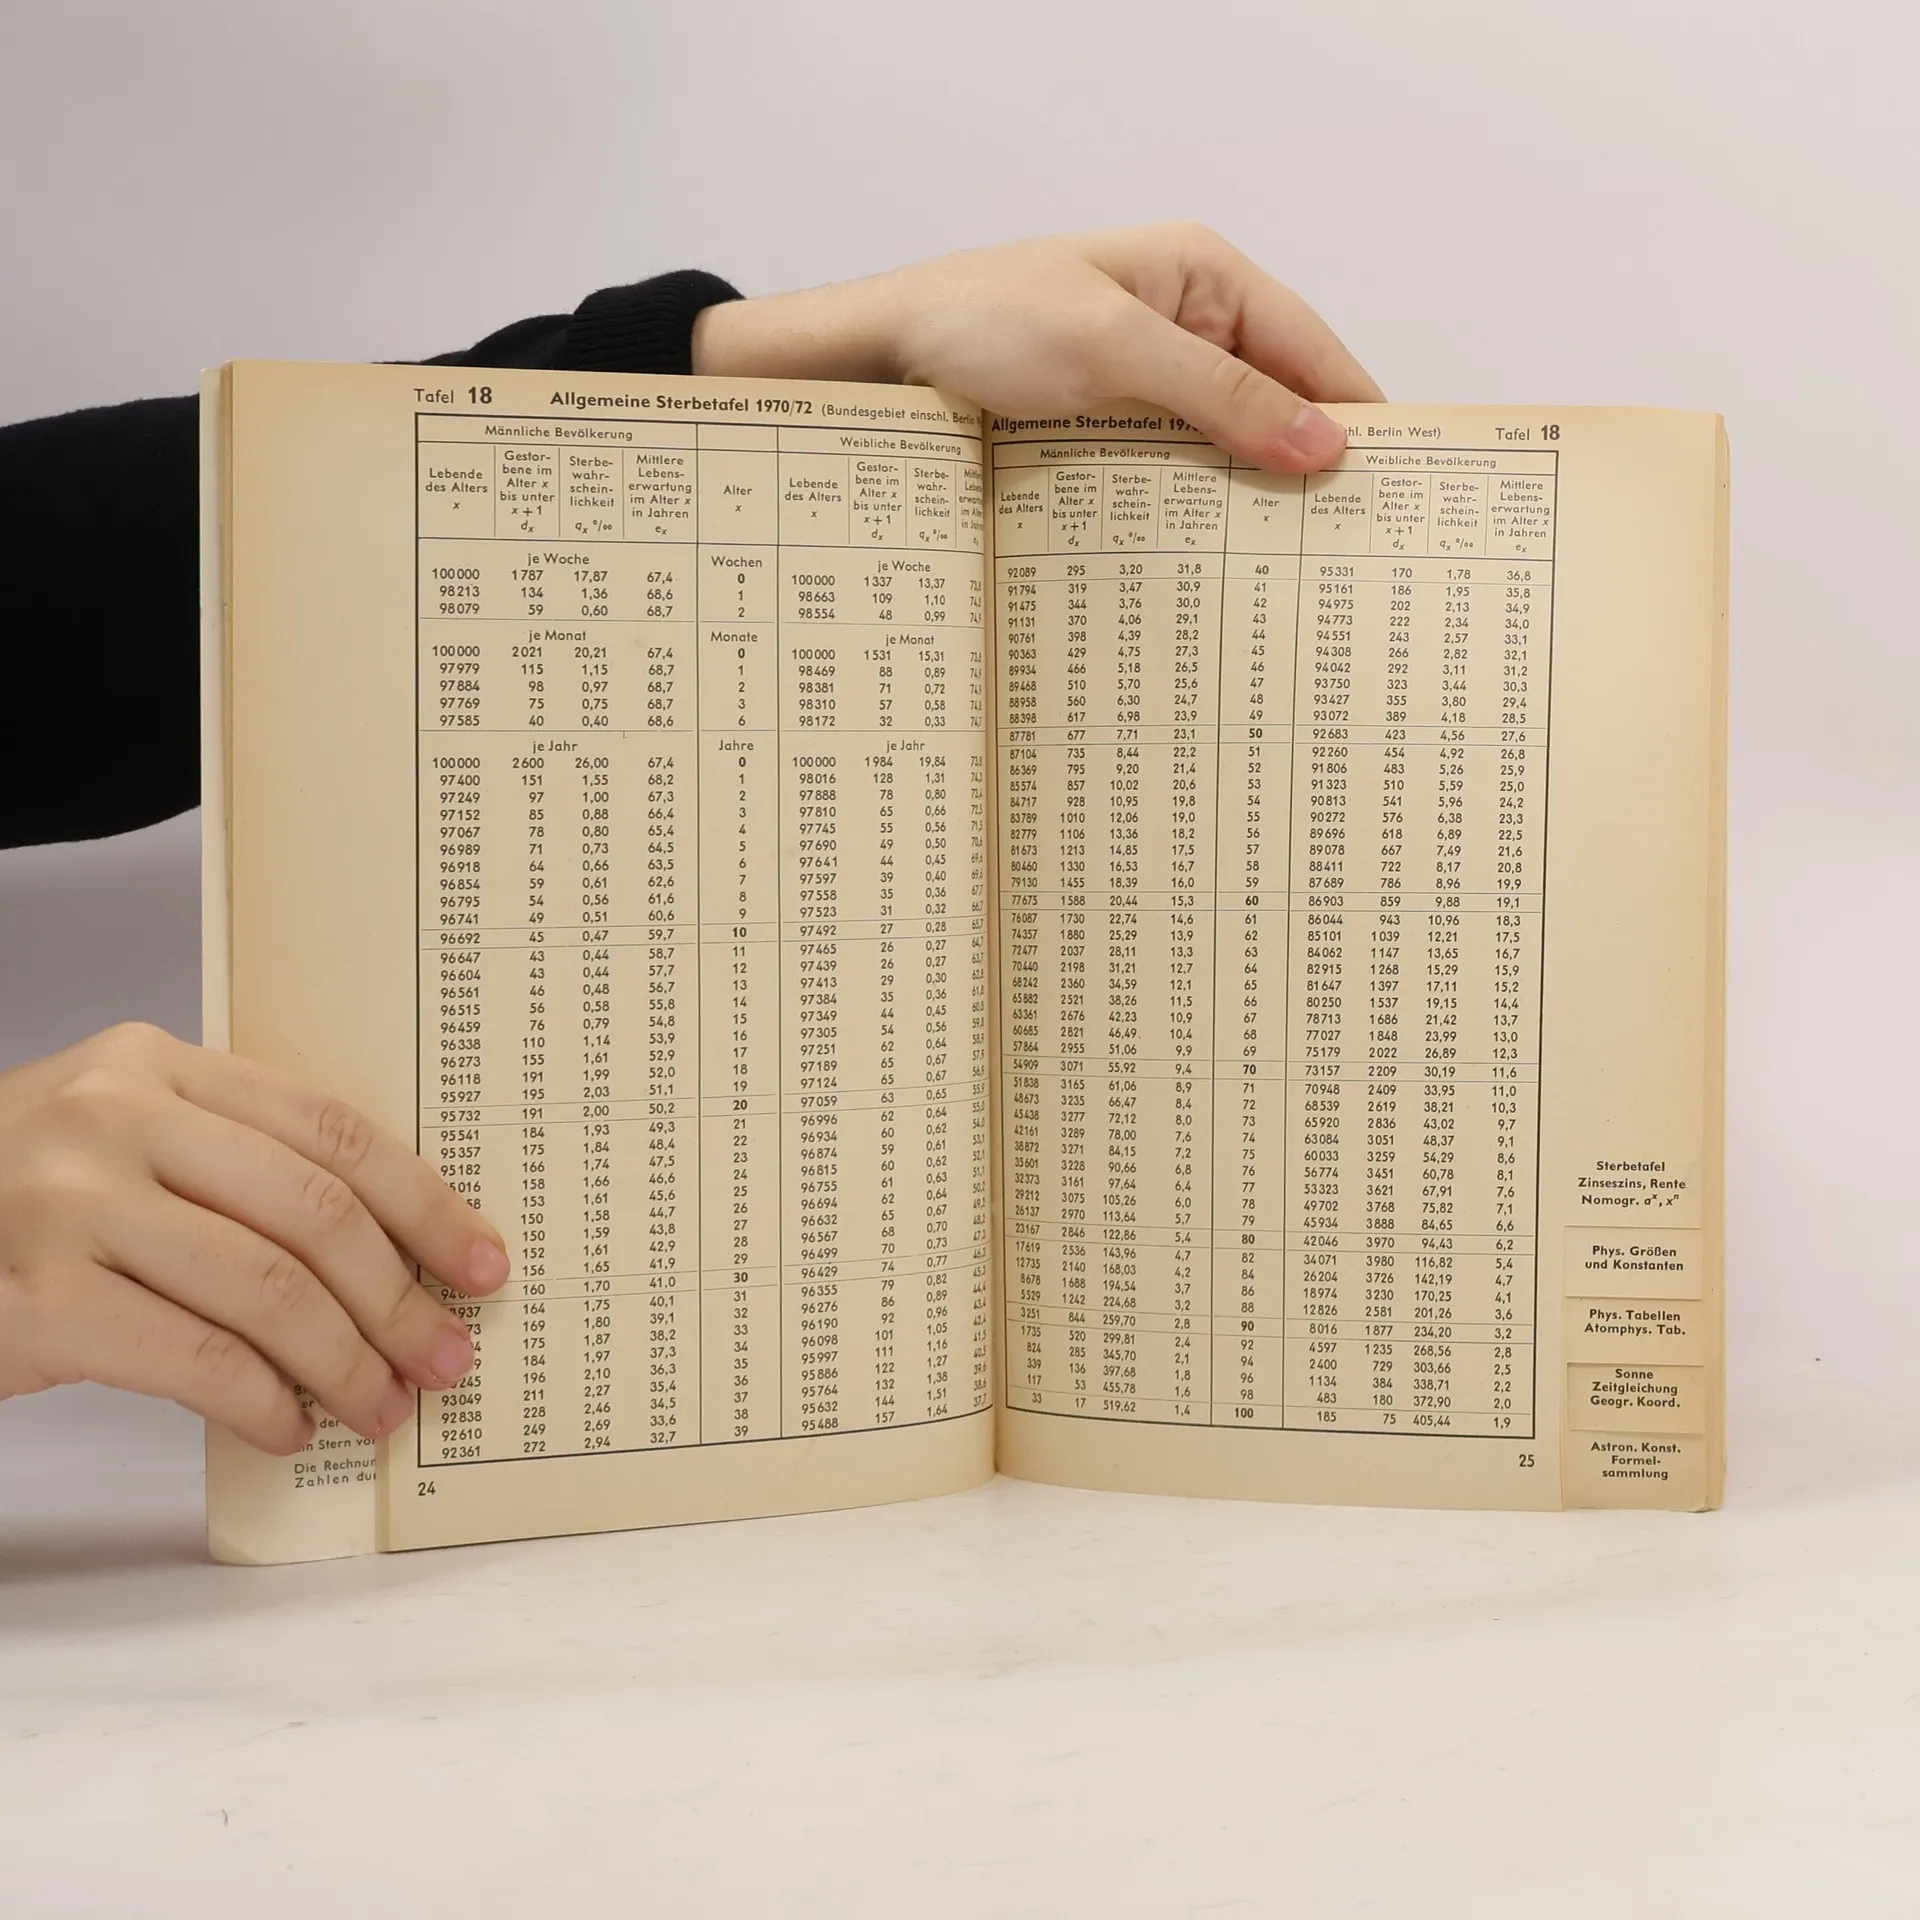 Tafel 18 Allgemeine Sterbetafel 1970/72 (Bundesgebiet einschl. Berlin
Männliche Bevölkerung Weibliche Bevölkerung
Lebende des Alters x Gestor- bene im Alter x bis unter x+1 dx Sterbe- wahr- schein- lichkeit qx ‰ Mittlere Lebens- erwartung im Alter x in Jahren ex Alter x Lebende des Alters x Gestor- bene im Alter x bis unter x+1 dx Sterbe- wahr- schein- lichkeit qx ‰
je Woche Wochen je Woche
100000 1787 17,87 67,4 0 100000 1337 13,37
98213 134 1,36 68,6 1 98663 109 1,10
98079 59 0,60 68,7 2 98554 48 0,99
je Monat Monate je Monat
100000 2021 20,21 67,4 0 100000 1531 15,31
97979 115 1,15 68,7 1 98469 88 0,89
97884 98 0,97 68,7 2 98381 71 0,72
97769 75 0,75 68,7 3 98310 57 0,58
97585 40 0,40 68,6 6 98172 32 0,33
je Jahr Jahre je Jahr
100000 2600 26,00 67,4 0 100000 1984 19,84
97400 151 1,55 68,2 1 98016 128 1,31
97249 97 1,00 67,3 2 97888 78 0,80
97152 85 0,88 66,4 3 97810 65 0,66
97067 78 0,80 65,4 4 97745 55 0,56
96989 71 0,73 64,5 5 97690 49 0,50
96918 64 0,66 63,5 6 97641 44 0,45
96854 59 0,61 62,6 7 97597 39 0,40
96795 54 0,56 61,6 8 97558 35 0,36
96741 49 0,51 60,6 9 97523 31 0,32
96692 45 0,47 59,7 10 97492 27 0,28
96647 43 0,44 58,7 11 97465 26 0,27
96604 43 0,44 57,7 12 97439 26 0,27
96561 46 0,48 56,7 13 97413 29 0,30
96515 56 0,58 55,8 14 97384 35 0,36
96459 76 0,79 54,8 15 97349 44 0,45
96338 110 1,14 53,9 16 97305 54 0,56
96273 155 1,61 52,9 17 97251 62 0,64
96118 191 1,99 52,0 18 97189 65 0,67
95927 195 2,03 51,1 19 97124 65 0,67
95732 191 2,00 50,2 20 97059 63 0,65
95541 184 1,93 49,3 21 96996 62 0,64
95357 175 1,84 48,4 22 96934 60 0,62
95182 166 1,74 47,5 23 96874 59 0,61
5016 158 1,66 46,6 24 96815 60 0,62
58 153 1,61 45,6 25 96755 61 0,63
150 1,58 44,7 26 96694 62 0,64
150 1,59 43,8 27 96632 65 0,67
152 1,61 42,9 28 96567 68 0,70
156 1,65 41,9 29 96499 70 0,73
160 1,70 41,0 30 96429 74 0,77
937 164 1,75 40,1 31 96355 79 0,82
73 169 1,80 39,1 32 96276 86 0,89
175 1,87 38,2 33 96190 92 0,96
184 1,97 37,3 34 96098 101 1,05
245 196 2,10 36,3 35 95997 111 1,16
93049 211 2,27 35,4 36 95886 122 1,27
92838 228 2,46 34,5 37 95764 132 1,38
92610 249 2,69 33,6 38 95632 144 1,51
92361 272 2,94 32,7 39 95488 157 1,64
24
der
Stern vor
Die Rechnun
Zahlen dur
Allgemeine Sterbetafel hl. Berlin West) Tafel 18
Männliche Bevölkerung Weibliche Bevölkerung
Lebende des Alters x Gestor- bene im Alter x bis unter x+1 dx Sterbe- wahr- schein- lichkeit qx ‰ Mittlere Lebens- erwartung im Alter x in Jahren ex Alter x Lebende des Alters x Gestor- bene im Alter x bis unter x+1 dx Sterbe- wahr- schein- lichkeit qx ‰ Mittlere Lebens- erwartung im Alter x in Jahren ex
92089 295 3,20 31,8 40 95331 170 1,78 36,8
91794 319 3,47 30,9 41 95161 186 1,95 35,8
91475 344 3,76 30,0 42 94975 202 2,13 34,9
91131 370 4,06 29,1 43 94773 222 2,34 34,0
90761 398 4,39 28,2 44 94551 243 2,57 33,1
90363 429 4,75 27,3 45 94308 266 2,82 32,1
89934 466 5,18 26,5 46 94042 292 3,11 31,2
89468 510 5,70 25,6 47 93750 323 3,44 30,3
88958 560 6,30 24,7 48 93427 355 3,80 29,4
88398 617 6,98 23,9 49 93072 389 4,18 28,5
87781 677 7,71 23,1 50 92683 423 4,56 27,6
87104 735 8,44 22,2 51 92260 454 4,92 26,8
86369 795 9,20 21,4 52 91806 483 5,26 25,9
85574 857 10,02 20,6 53 91323 510 5,59 25,0
84717 928 10,95 19,8 54 90813 541 5,96 24,2
83789 1010 12,06 19,0 55 90272 576 6,38 23,3
82779 1106 13,36 18,2 56 89696 618 6,89 22,5
81673 1213 14,85 17,5 57 89078 667 7,49 21,6
80460 1330 16,53 16,7 58 88411 722 8,17 20,8
79130 1455 18,39 16,0 59 87689 786 8,96 19,9
77675 1588 20,44 15,3 60 86903 859 9,88 19,1
76087 1730 22,74 14,6 61 86044 943 10,96 18,3
74357 1880 25,29 13,9 62 85101 1039 12,21 17,5
72477 2037 28,11 13,3 63 84062 1147 13,65 16,7
70440 2198 31,21 12,7 64 82915 1268 15,29 15,9
68242 2360 34,59 12,1 65 81647 1397 17,11 15,2
65882 2521 38,26 11,5 66 80250 1537 19,15 14,4
63361 2676 42,23 10,9 67 78713 1686 21,42 13,7
60685 2821 46,49 10,4 68 77027 1848 23,99 13,0
57864 2955 51,06 9,9 69 75179 2022 26,89 12,3
54909 3071 55,92 9,4 70 73157 2209 30,19 11,6
51838 3165 61,06 8,9 71 70948 2409 33,95 11,0
48673 3235 66,47 8,4 72 68539 2619 38,21 10,3
45438 3277 72,12 8,0 73 65920 2836 43,02 9,7
42161 3289 78,00 7,6 74 63084 3051 48,37 9,1
38872 3271 84,15 7,2 75 60033 3259 54,29 8,6
35601 3228 90,66 6,8 76 56774 3451 60,78 8,1
32373 3161 97,64 6,4 77 53323 3621 67,91 7,6
29212 3075 105,26 6,0 78 49702 3768 75,82 7,1
26137 2970 113,64 5,7 79 45934 3888 84,65 6,6
23167 2846 122,86 5,4 80 42046 3970 94,43 6,2
17619 2536 143,96 4,7 82 34071 3980 116,82 5,4
12735 2140 168,03 4,2 84 26204 3726 142,19 4,7
8678 1688 194,54 3,7 86 18974 3230 170,25 4,1
5529 1242 224,68 3,2 88 12826 2581 201,26 3,6
3251 844 259,70 2,8 90 8016 1877 234,20 3,2
1735 520 299,81 2,4 92 4597 1235 268,56 2,8
824 285 345,70 2,1 94 2400 729 303,66 2,5
339 136 397,68 1,8 96 1134 384 338,71 2,2
117 53 455,78 1,6 98 483 180 372,90 2,0
33 17 519,62 1,4 100 185 75 405,44 1,9
25
Sterbetafel
Zinseszins, Rente
Nomogr. aˣ, xⁿ
Phys. Größen
und Konstanten
Phys. Tabellen
Atomphys. Tab.
Sonne
Zeitgleichung
Geogr. Koord.
Astron. Konst.
Formel-
sammlung